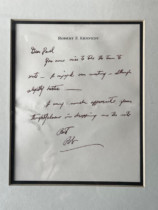 ROBERT F. KENNEDY
Dear Paul
You were nice to take the time to
write - I enjoyed our meeting - although
slightly
I very much appreciate your
thoughtfulness in dropping me the note
Best